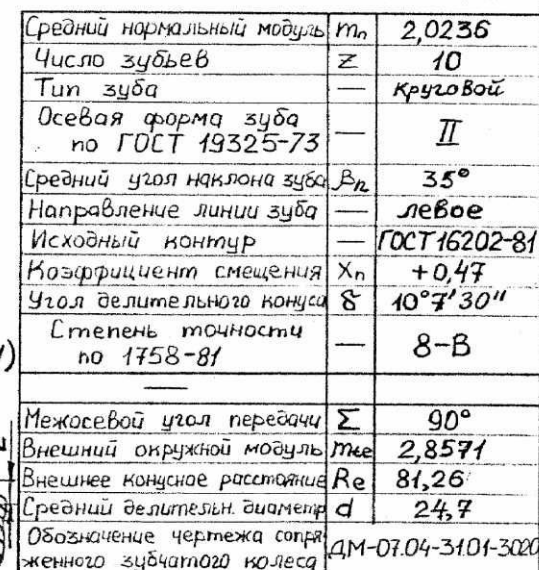 Средний нормальный модуль mn 2,0236
Число зубьев z 10
Тип зуба — круговой
Осевая форма зуба
по ГОСТ 19325-73 — II
Средний угол наклона зуба βn 35°
Направление линии зуба — левое
Исходный контур — ГОСТ 16202-81
Коэффициент смещения Xn +0,47
Угол делительного конуса δ 10°7'30"
Степень точности
по 1758-81 — 8-В
—
Межосевой угол передачи Σ 90°
Внешний окружной модуль mte 2,8571
Внешнее конусное расстояние Re 81,26
Средний делительн. диаметр d 24,7
Обозначение чертежа сопря
женного зубчатого колеса ДМ-07.04-31.01-3020